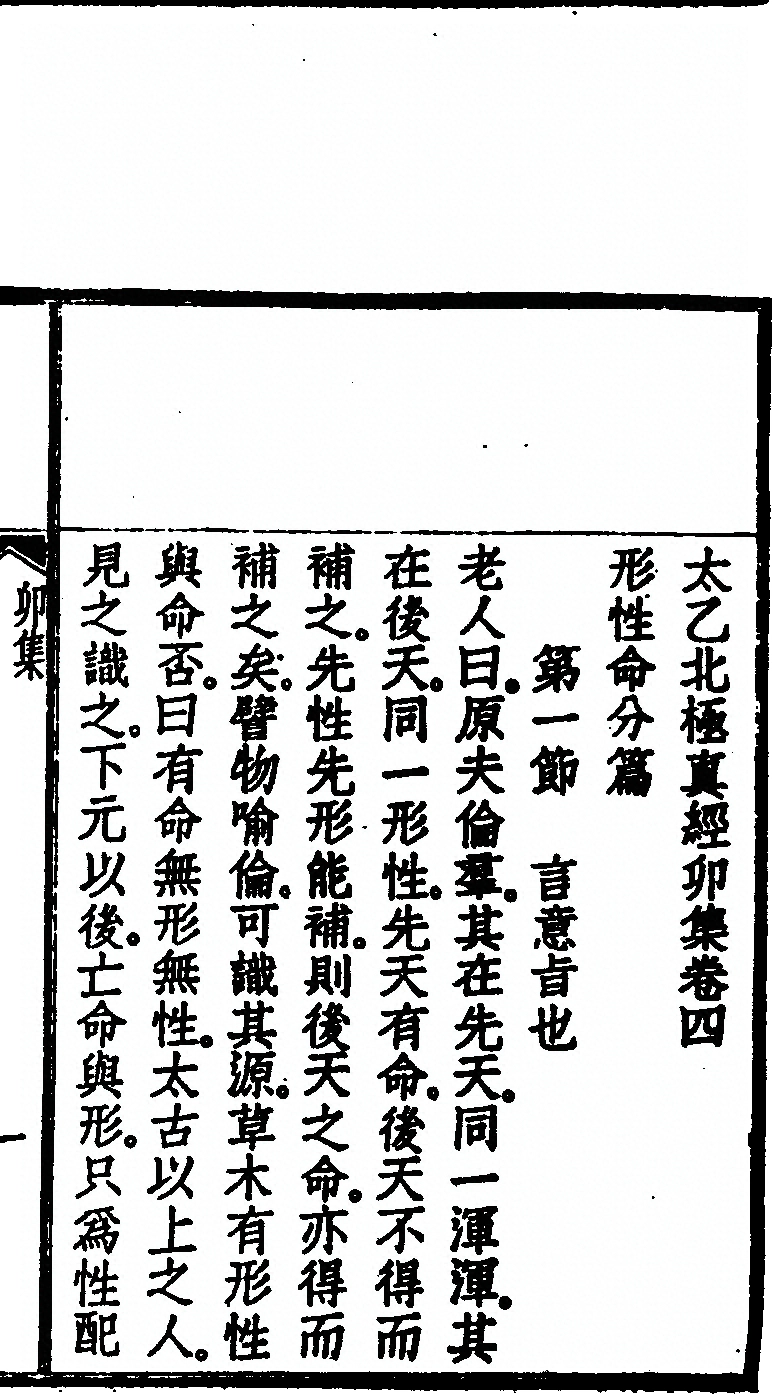 太乙北極真經卯集卷四
形性命分篇
第一節　言意旨也
老人曰。原夫倫羣。其在先天。同一渾渾。其
在後天。同一形性。先天有命。後天不得而
補之。先性先形能補。則後天之命。亦得而
補之矣。譬物喻倫。可識其源。草木有形性
與命否。曰有命無形無性。太古以上之人。
見之識之。下元以後。亡命與形。只爲性配
卯集
一